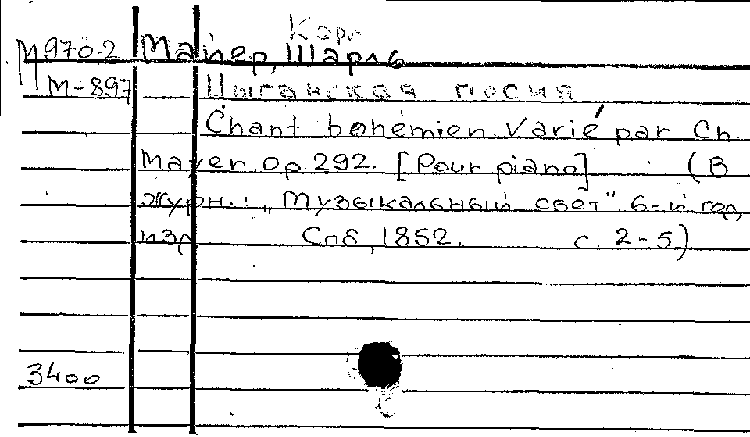 Карл
М970-2 Майер, Шарль
М-897 Цыганская песня
Chant bohémien varié par Ch
Mayer op. 292. [Pour piano] (В
журн.: „Музыкальный свет" 6-й год
изд Спб, 1852. с. 2-5.)
3400